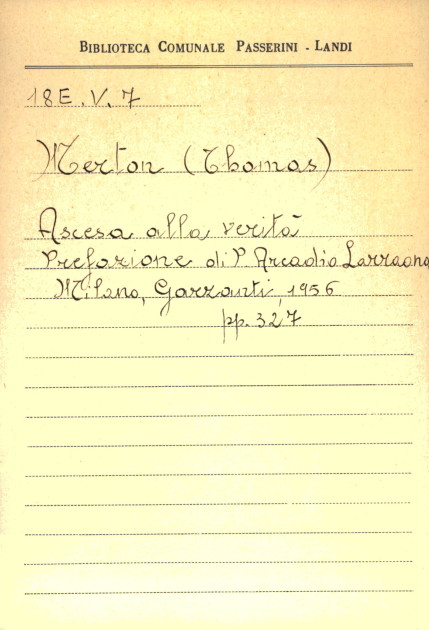 BIBLIOTECA COMUNALE PASSERINI - LANDI
18E.V.7
Merton (Thomas)
Ascesa alla verità
Prefazione di P. Arcadio Larraona
Milano, Garzanti, 1956
pp. 327